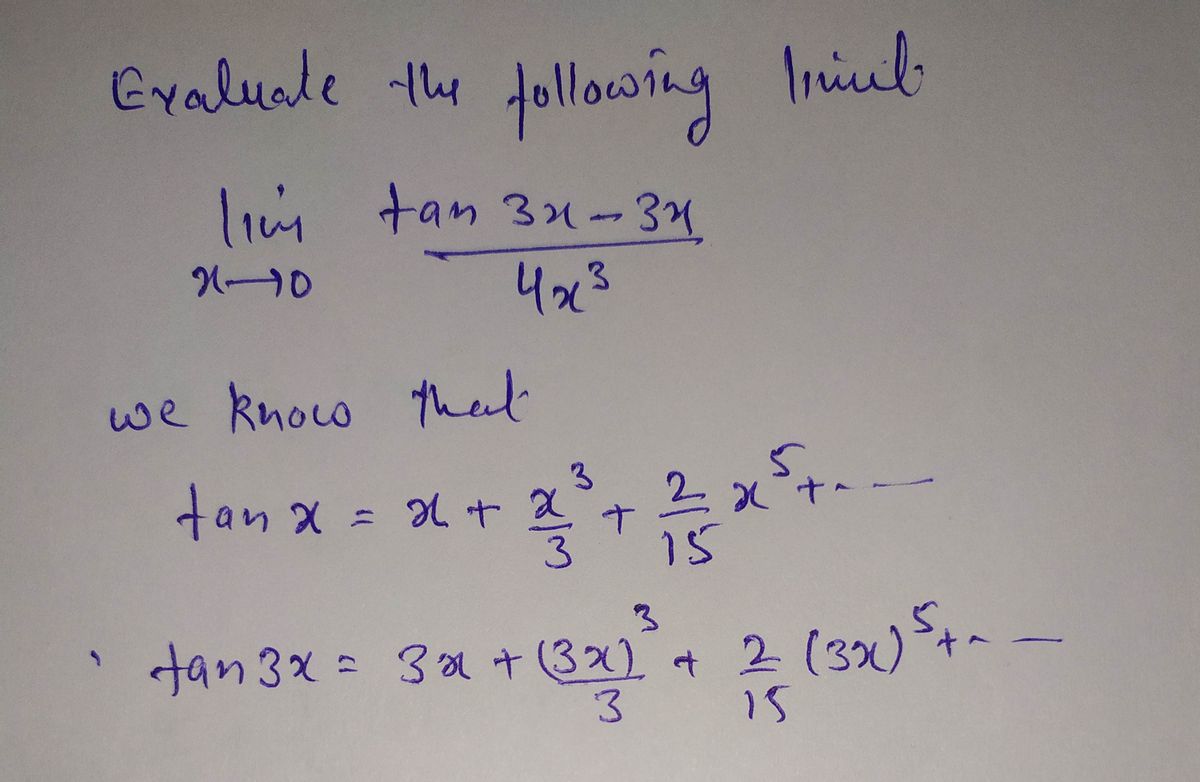 Evaluate the following limit
lim tan 3x - 3x
x→0 4x³
we know that
tan x = x + x³/3 + 2/15 x⁵ + - —
tan 3x = 3x + (3x)³/3 + 2/15 (3x)⁵ + - —